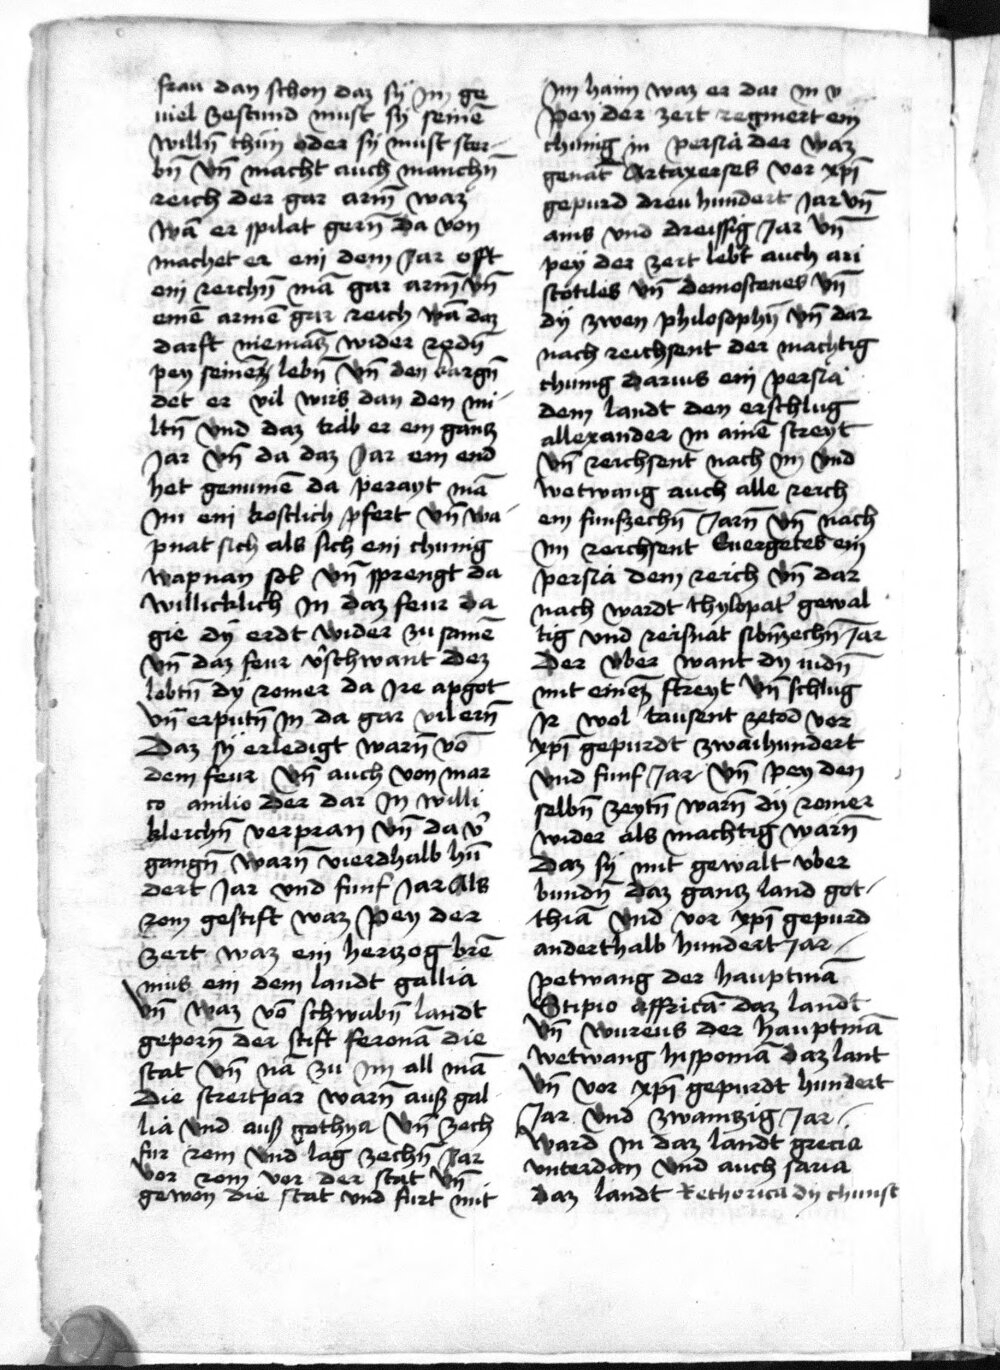 frau dan schon daz sÿ jm ge
uiel zestund must sÿ seinē
willn̄ thun oder sÿ must ster-
bn̄ vn̄ macht auch manchn̄
reich der gar arm̄ waz
wā er spilat gern̄ da von
machet er ein dem Jar offt
ein reichn̄ mā gar arm̄ vn̄
einē armē gar reich wā daz
darft niemāz wider redn̄
pey seinez lebn̄ vn̄ den kargn̄
det er vil wirs dan den mi-
ltn̄ vnd daz trāb er ein gansz
Jar vn̄ da daz Jar ein end
het genumē da perayt mā
jm ein kostlich pfert vn̄ wa-
pnat sich als sich ein chunig
wapnan sol vn̄ sprengt da
willicklich in daz feur da
gie dÿ erdt wider zu samē
vn̄ daz feur v̓schwant dez
lebtn̄ dÿ romer da Jre apgot
vn̄ erputn̄ in da gar vil ern̄
Daz sÿ erledigt warn̄ vō
dem feur vn̄ auch von mar
co anilio der dar in willi
kleichn̄ verpran vn̄ da v̓
gangn̄ warn̄ vierdhalb hū
dert Jar vnd funf Jar Als
rom gestift waz Pey der
zeit waz ein hertzog brē
mus ein dem landt gallia
vn̄ waz vō schwabn̄ landt
geporn̄ der stift feronā die
stat vn̄ nā zu im all mā
die streitpar warn̄ auß gal
lia vnd auß gothya vn̄ zech
fur rom vnd lag zechn̄ Jar
vor rom vor der stat vn̄
gewon die stat vnd furt mit
jm haim waz er dar in v
Pey der zeit regniert ein
chunig in persia der waz
genāt Artaxerses vor xp̄i
gepurd dreu hundert Jar vn̄
ains vnd dreissig Jar vn̄
pey der zeit lebt auch ari
stotiles vn̄ demostenes vn̄
dÿ zwen philosophn̄ vn̄ dar
nach reichsent der machtig
chunig darius ein persia
dem landt den erschlug
allexander in ainē streyt
vn̄ reichsent nach im vnd
wetwang auch alle reich
ein funfzechn̄ Jarn̄ vn̄ nach
im reichsent Euergetes ein
persia dem reich vn̄ dar
nach wardt thylopat̓ gewal
tig vnd reisnāt sibn̄zechn̄ Jar
der vber want dy iudn̄
mit einez streyt vn̄ schlug
Jr wol tausent zetod vor
xp̄i gepurdt zwaihundert
vnd funf Jar vn̄ pey den
selbn̄ zeytn̄ warn̄ dÿ romer
wider als machtig warn̄
Daz sÿ mit gewalt vber
bundn̄ daz gansz land got-
thia vnd vor xp̄i gepurd
anderthalb hundert Jar
petwang der hauptmā
Stipio affricā daz landt
vn̄ wureus der hauptmā
wetwang hisponiā daz lant
vn̄ vor xp̄i gepurdt hundert
Jar vnd zwainzig Jar
ward in daz landt grecia
vnterdan vnd auch saria
daz landt Rethorica dy chunst